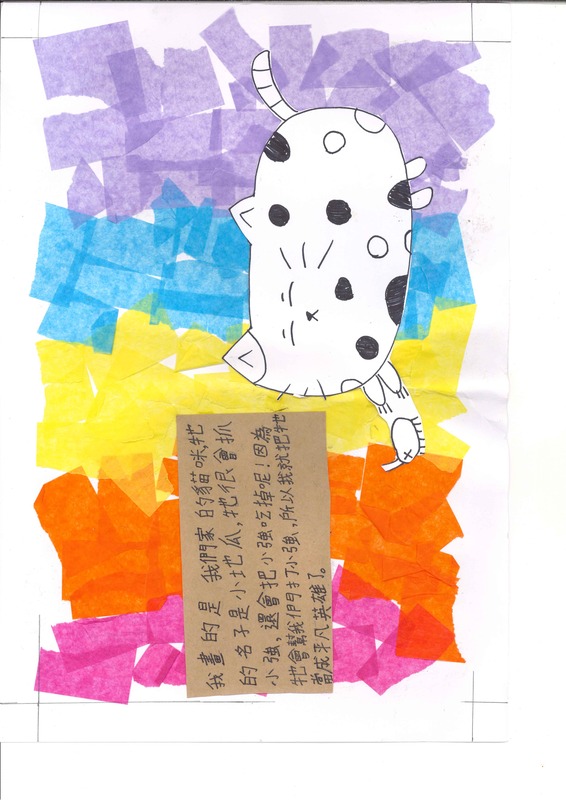 我畫的是 我們家的貓咪,牠
的名子是小地瓜,牠很會抓
小強,還會把小強吃掉呢!因為
牠會幫我們打小強,所以我就把牠
當成平凡英雄了。